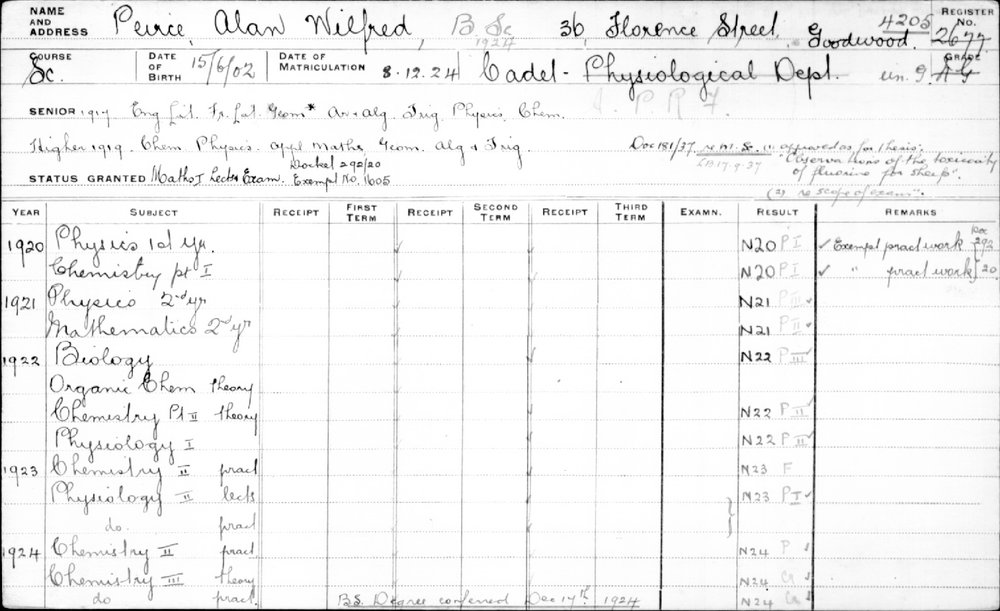 NAME AND ADDRESS Peirce, Alan Wilfred, B Sc 1924 36, Florence Street, Goodwood. 4205 REGISTER No. 2677
COURSE Sc. DATE OF BIRTH 15/6/02 DATE OF MATRICULATION 8.12.24 Cadet - Physiological Dept. un. g. GRADE A G
P R 7
SENIOR 1917 Eng Lit. Fr. Lat. Geom* Ar & Alg. Trig. Physics. Chem.
Higher 1919. Chem Physics. Appl Maths, Geom. Alg & Trig.
Doc 181/37. re M. Sc. approved as for thesis:
17-9-37 "Observations of the toxicity
of fluorine for sheep".
Docket 292/20
STATUS GRANTED Maths I Lects & Exam. Exempt No. 1605
(2) re scope of exam".
YEAR SUBJECT RECEIPT FIRST TERM RECEIPT SECOND TERM RECEIPT THIRD TERM EXAMN. RESULT REMARKS
1920 Physics 1st yr. N20 P I ✓ Exempt pract work Doc 292
Chemistry pt I N20 P I ✓ " pract work 20
1921 Physics 2nd yr N21 P III ✓
Mathematics 2nd yr N21 P II ✓
1922 Biology N22 P III ✓
Organic Chem theory
Chemistry Pt II theory N22 P II ✓
Physiology I N22 P II ✓
1923 Chemistry II pract N23 F
Physiology II lects N23 P I ✓
do. pract
1924 Chemistry II pract. N24 P
Chemistry III theory N24 Cr
do pract. BSc Degree conferred Dec 17th 1924 N24 Cr